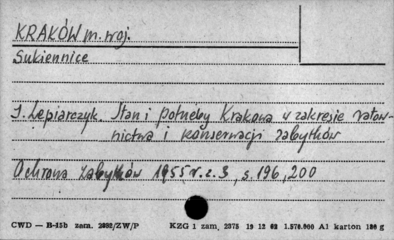 KRAKÓW m. woj.
Sukiennice
J. Lepiarczyk. Stan i potrzeby Krakowa w zakresie ratow-
nictwa i konserwacji zabytków
Ochrona Zabytków 1955 r. z. 3, s. 196, 200
CWD — B-15b zam. 2092/ZW/P KZG 1 zam. 2075 19 12 02 1.570.000 A1 karton 180 g